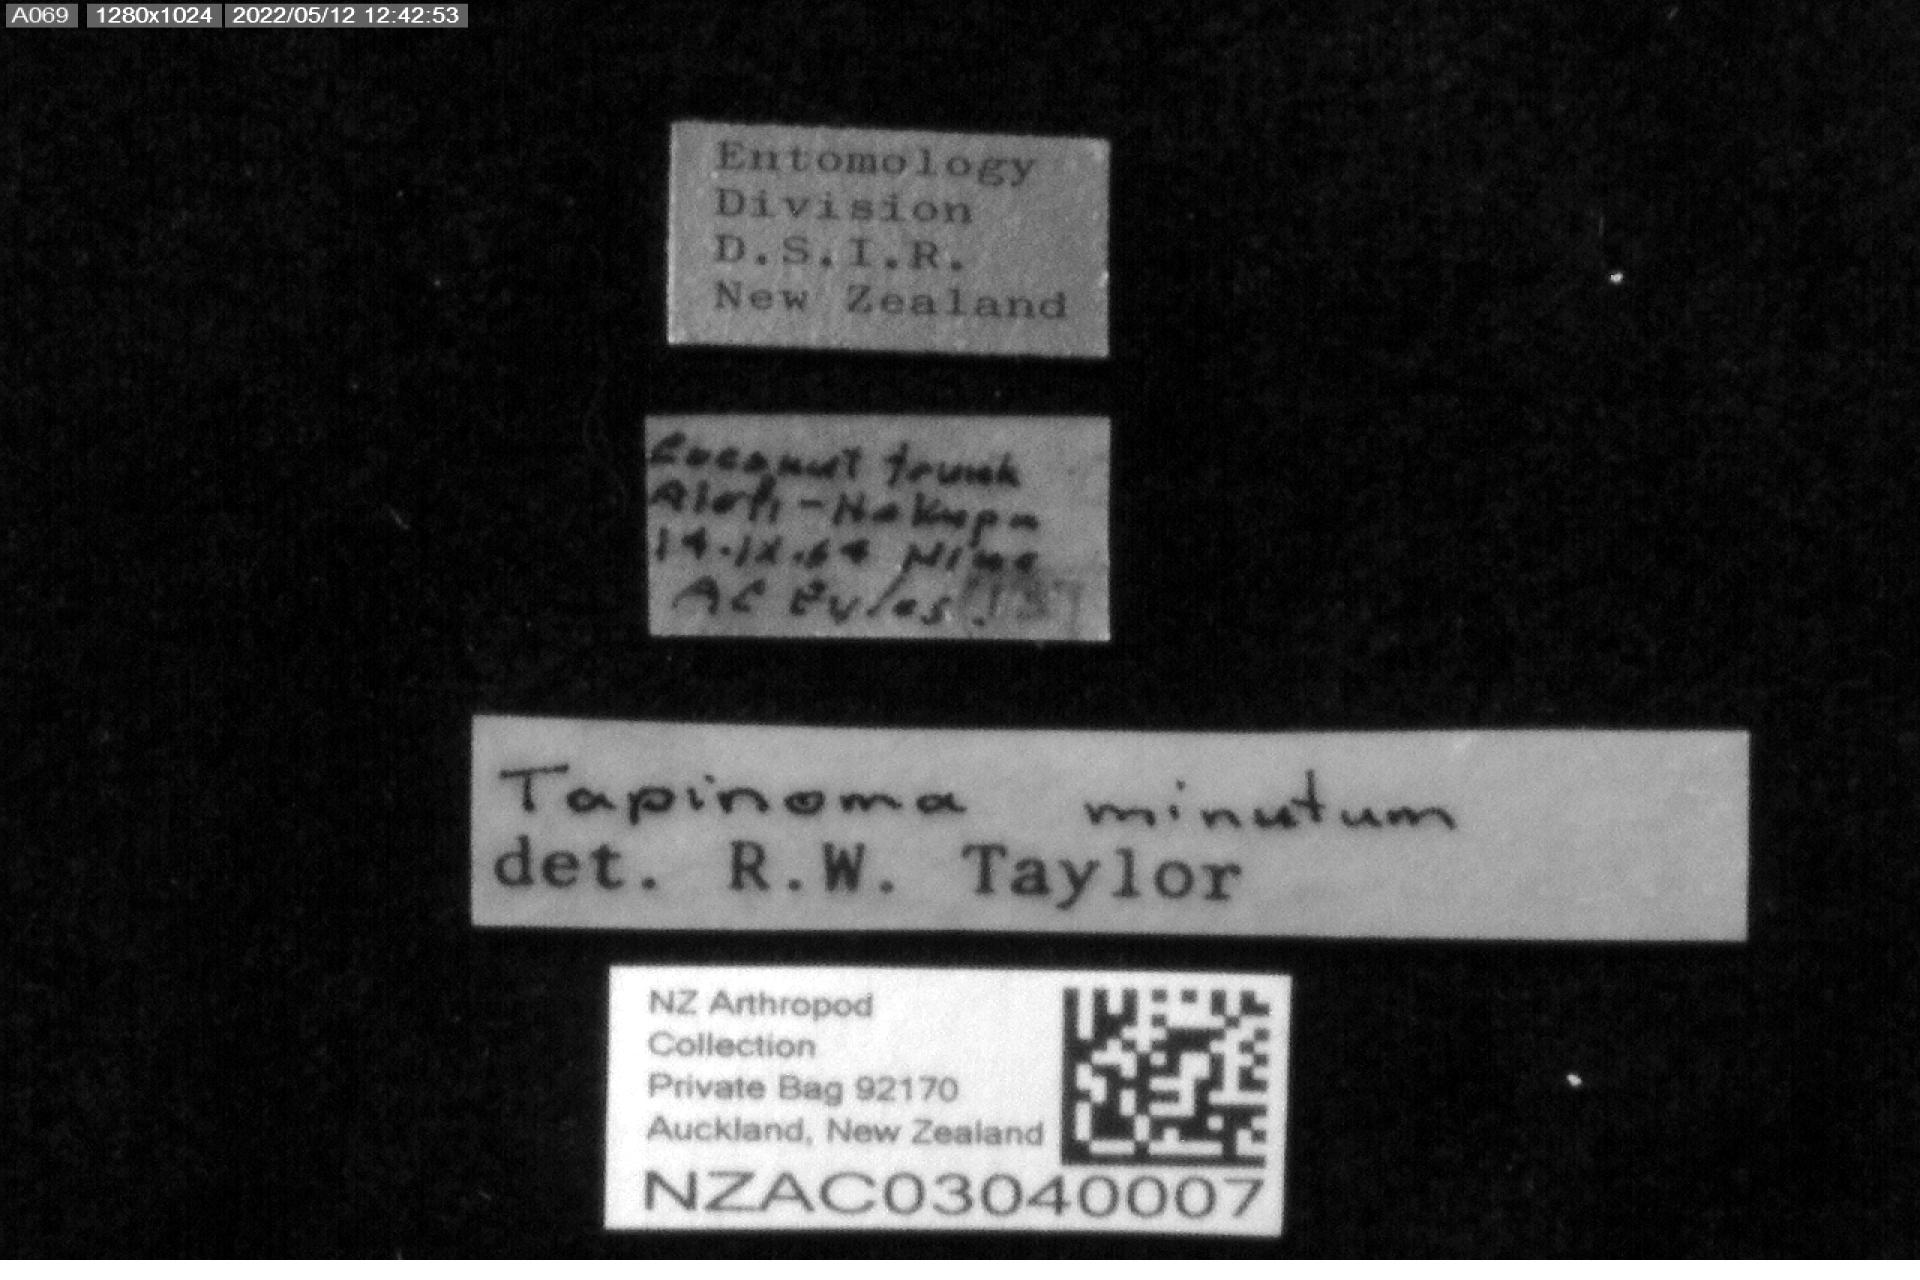 A069 1280x1024 2022/05/12 12:42:53
Entomology
Division
D.S.I.R.
New Zealand
Coconut trunk
Alofi - Hakupu
14.IX.64 Niue
AC Eyles.
Tapinoma minutum
det. R.W. Taylor
NZ Arthropod
Collection
Private Bag 92170
Auckland, New Zealand
NZAC03040007